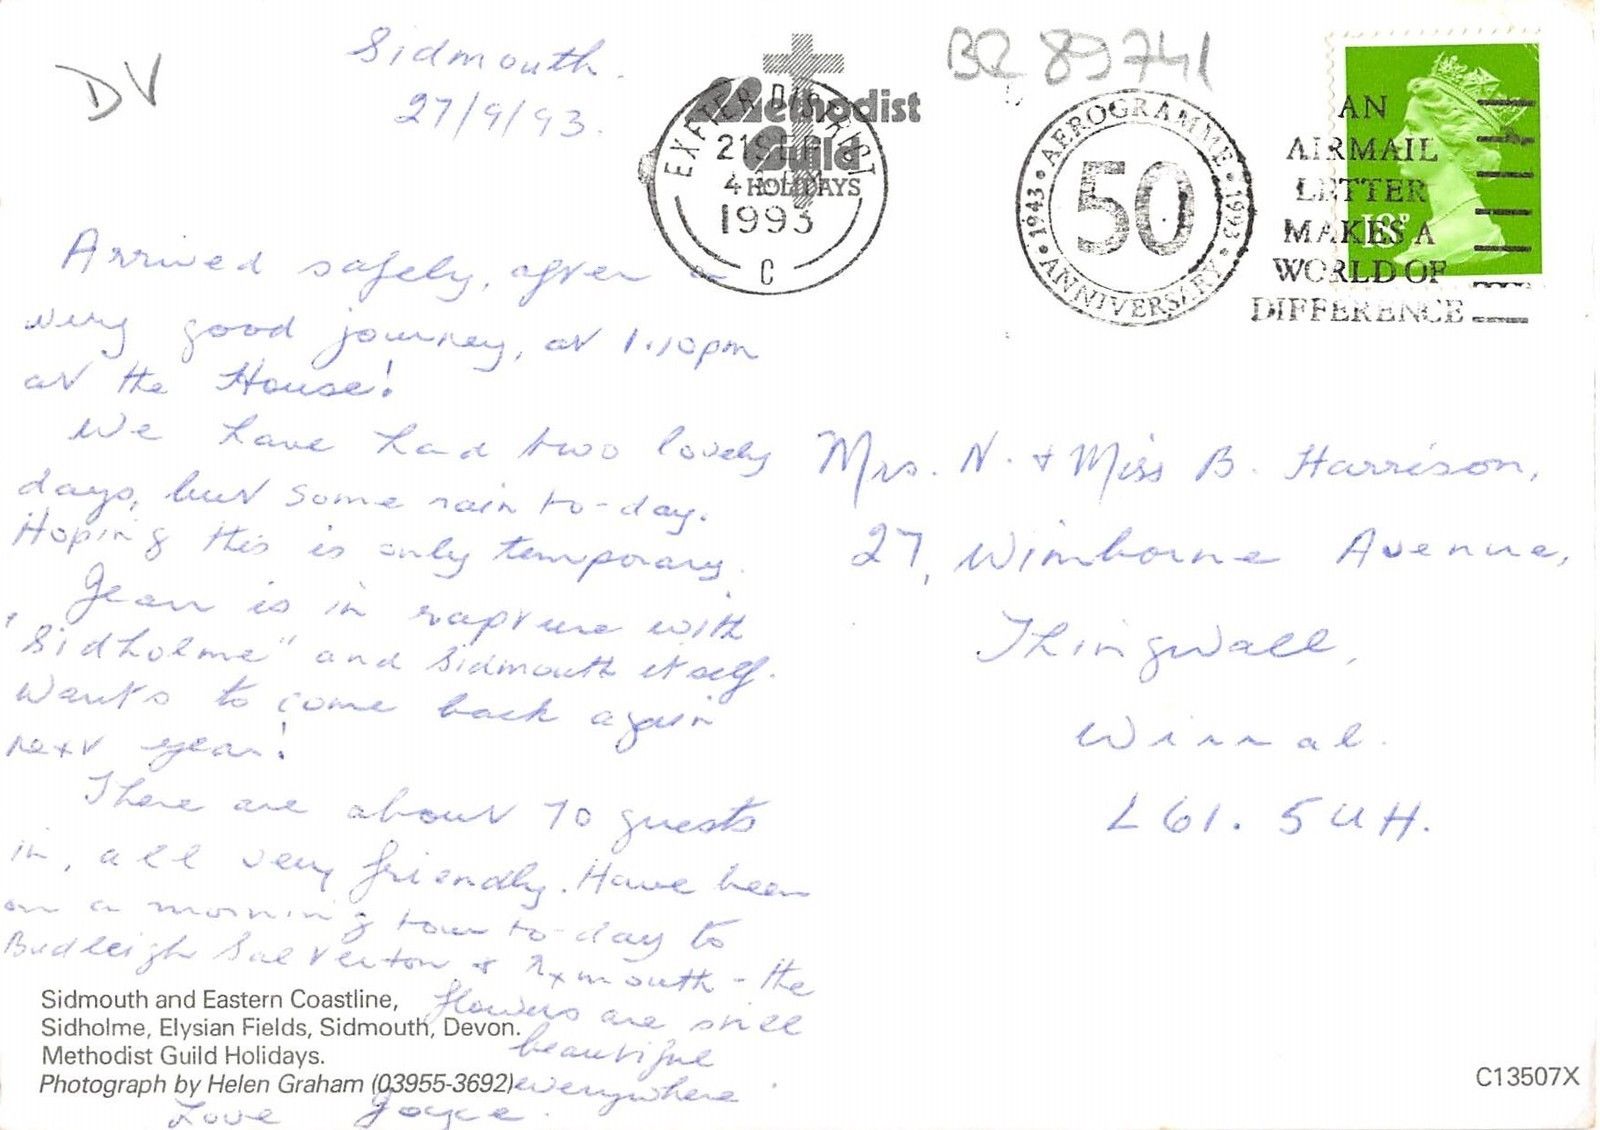 DV
Sidmouth.
27/9/93.
BR 89741
Methodist
Guild
HOLIDAYS
EXETER DISTRICT
1993
C
AEROGRAMME
1943 • 50 • 1993
ANNIVERSARY
AN
AIRMAIL
LETTER
MAKES A
WORLD OF
DIFFERENCE
18P
Arrived safely, after a
very good journey, at 1.10pm
at the House!
We have had two lovely
days, but some rain to-day.
Hoping this is only temporary.
Jean is in rapture with
"Sidholme" and Sidmouth itself.
Wants to come back again
next year!
There are about 70 guests
in, all very friendly. Have been
on a morning tour to-day to
Budleigh Salverton & Exmouth - the
flowers are still
beautiful
everywhere.
Love Joyce.
Mrs. N. + Miss B. Harrison,
27, Wimborne Avenue,
Thingwall,
Wirral.
L61. 5UH.
Sidmouth and Eastern Coastline,
Sidholme, Elysian Fields, Sidmouth, Devon.
Methodist Guild Holidays.
Photograph by Helen Graham (03955-3692)
C13507X